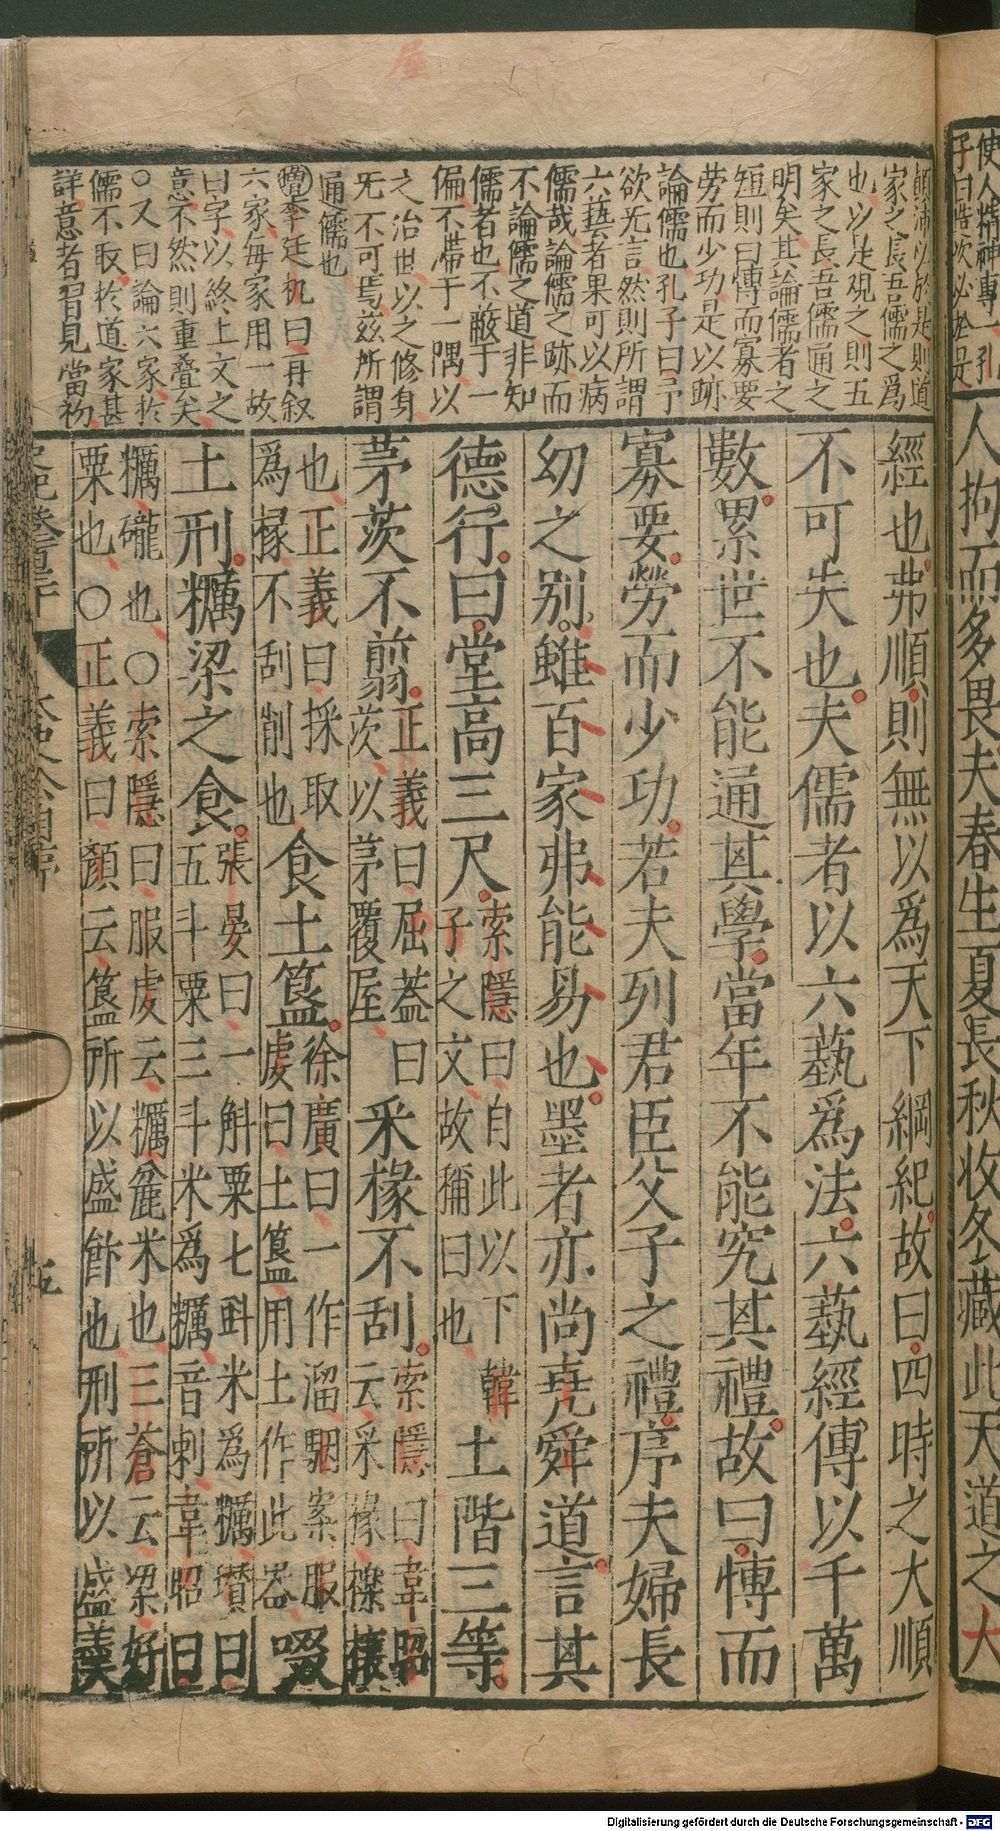 使人精神專一
孔子曰造次必於是
人拘而多畏夫春生夏長秋收冬藏此天道之大
顛沛必於是則道
家之長吾儒之爲
也以足觀之則五
家之長吾儒通之
明矣其論儒者之
短則曰博而寡要
勞而少功是以跡
論儒也孔子曰予
欲无言然則所謂
六藝者果可以病
儒哉論儒之跡而
不論儒之道非知
儒者也不蔽于一
偏不滯于一隅以
之治世以之修身
无不可焉玆所謂
通儒也
李廷机曰再叙
六家每家用一故
曰字以終上文之
意不然則重疊矣
○又曰論六家於
儒不取於道家甚
詳意者習見當初
經也弗順則無以爲天下綱紀故曰四時之大順
不可失也夫儒者以六藝爲法六藝經傳以千萬
數累世不能通其學當年不能究其禮故曰博而
寡要勞而少功若夫列君臣父子之禮序夫婦長
幼之别雖百家弗能易也墨者亦尚堯舜道言其
德行曰堂高三尺索隱曰自此以下韓子之文故稱曰也土階三等
茅茨不翦正義曰屈蓋曰茨以茅覆屋采椽不刮索隱曰韋昭云采椽櫟榱
也正義曰採取爲椽不刮削也食土簋徐廣曰一作溜駰案服虔曰土簋用土作此器啜
土刑糲粱之食張晏曰一斛粟七斗米爲糲瓚曰五斗粟三斗米爲糲音剌韋昭曰
糲䃧也○索隱曰服虔云糲麄米也三蒼云粱好
粟也○正義曰顏云簋所以盛飰也刑所以盛羹
史記卷一百三十
太史公自序
五
Digitalisierung gefördert durch die Deutsche Forschungsgemeinschaft - DFG